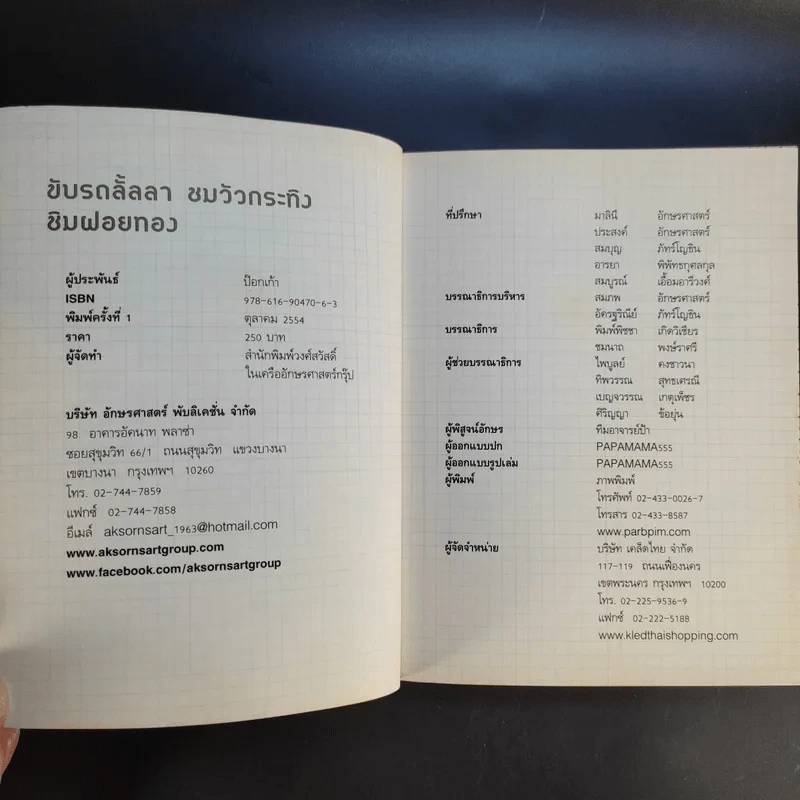 ขับรถลั้ลลา ชมวัวกระทิง
ชิมฝอยทอง
ผู้ประพันธ์ ป๊อกเก้า
ISBN 978-616-90470-6-3
พิมพ์ครั้งที่ 1 ตุลาคม 2554
ราคา 250 บาท
ผู้จัดทำ สำนักพิมพ์วงศ์สวัสดิ์
ในเครืออักษรศาสตร์กรุ๊ป
บริษัท อักษรศาสตร์ พับลิเคชั่น จำกัด
98 อาคารอัคนาท พลาซ่า
ซอยสุขุมวิท 66/1 ถนนสุขุมวิท แขวงบางนา
เขตบางนา กรุงเทพฯ 10260
โทร. 02-744-7859
แฟกซ์ 02-744-7858
อีเมล์ aksornsart_1963@hotmail.com
www.aksornsartgroup.com
www.facebook.com/aksornsartgroup
ที่ปรึกษา มาลินี อักษรศาสตร์
ประสงค์ อักษรศาสตร์
สมบุญ ภัทร์โญชิน
อารยา พิพัทธกุศลกุล
สมบูรณ์ เอื้อมอารีวงศ์
บรรณาธิการบริหาร สมภพ อักษรศาสตร์
อัครฐริณีย์ ภัทร์โญชิน
บรรณาธิการ พิมพ์พิชชา เกิดวิเชียร
ชมนาถ พงษ์ราศรี
ผู้ช่วยบรรณาธิการ ไพบูลย์ คงชาวนา
ทิพวรรณ สุทธเศรณี
เบญจวรรณ เกตุเพ็ชร
ศิริญญา ข้อยุ่น
ผู้พิสูจน์อักษร ทีมอาจารย์ป้า
ผู้ออกแบบปก PAPAMAMA555
ผู้ออกแบบรูปเล่ม PAPAMAMA555
ผู้พิมพ์ ภาพพิมพ์
โทรศัพท์ 02-433-0026-7
โทรสาร 02-433-8587
www.parbpim.com
ผู้จัดจำหน่าย บริษัท เคล็ดไทย จำกัด
117-119 ถนนเฟื่องนคร
เขตพระนคร กรุงเทพฯ 10200
โทร. 02-225-9536-9
แฟกซ์ 02-222-5188
www.kledthaishopping.com